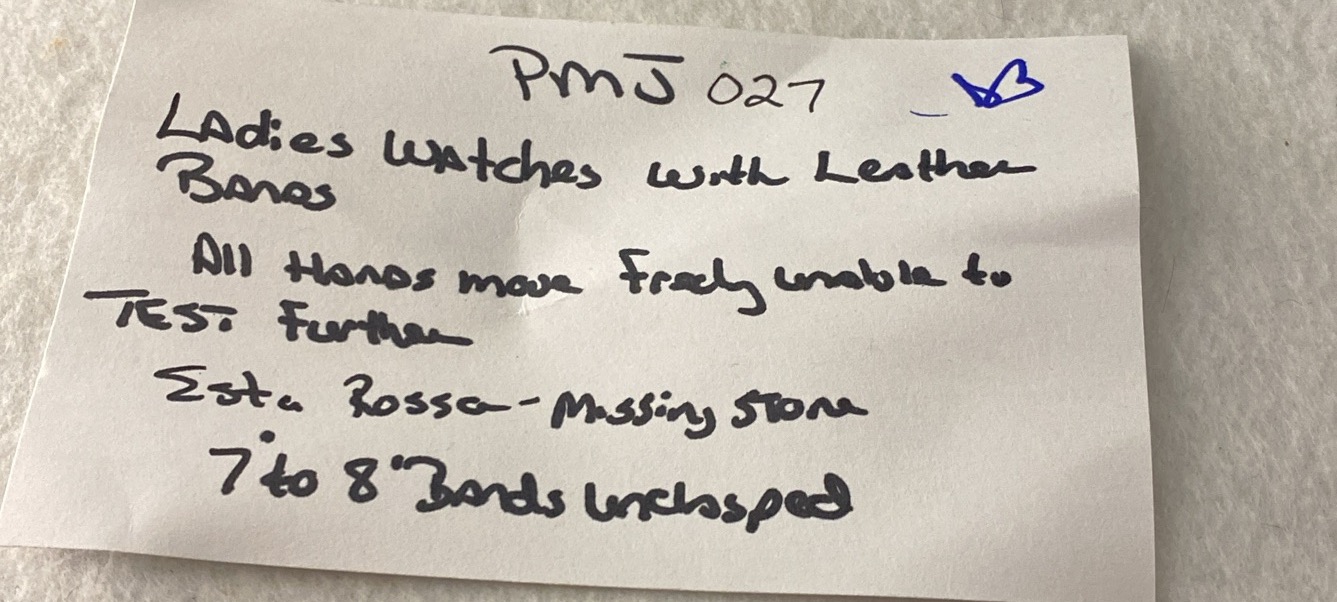 PMJ 027
Ladies Watches with Leather
Bands
All Hands move Freely unable to
TEST Further
Esta Rossa - Missing Stone
7" to 8" Bands unclasped